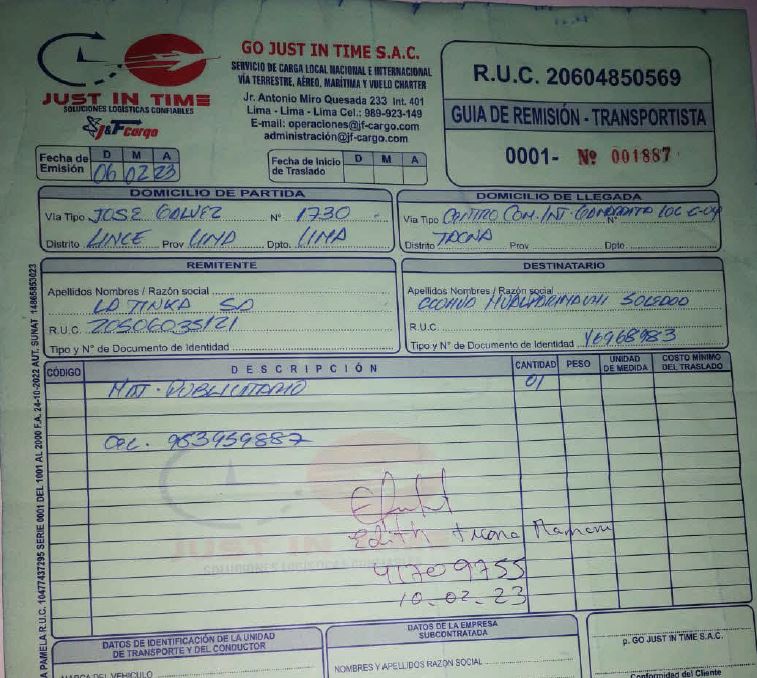 JUST IN TIME
SOLUCIONES LOGÍSTICAS CONFIABLES
J&F Cargo
GO JUST IN TIME S.A.C.
SERVICIO DE CARGA LOCAL NACIONAL E INTERNACIONAL
VÍA TERRESTRE, AÉREO, MARÍTIMA Y VUELO CHARTER
Jr. Antonio Miro Quesada 233 Int. 401
Lima - Lima - Lima Cel.: 989-923-149
E-mail: operaciones@jf-cargo.com
administración@jf-cargo.com
R.U.C. 20604850569
GUIA DE REMISIÓN - TRANSPORTISTA
0001- Nº 001887
Fecha de Emisión D M A
06 02 23
Fecha de Inicio de Traslado D M A
DOMICILIO DE PARTIDA
Vía Tipo JOSE GALVEZ Nº 1730
Distrito LINCE Prov LIMA Dpto. LIMA
DOMICILIO DE LLEGADA
Vía Tipo CENTRO COM. INT. Nº
Distrito TACNA Prov Dpto.
REMITENTE
Apellidos Nombres / Razón social
LA TINKA SA
R.U.C. 20506035121
Tipo y N° de Documento de Identidad
DESTINATARIO
Apellidos Nombres / Razón social
SOLEDAD
R.U.C.
Tipo y N° de Documento de Identidad 46968983
CÓDIGO DESCRIPCIÓN CANTIDAD PESO UNIDAD DE MEDIDA COSTO MÍNIMO DEL TRASLADO
MAT. PUBLICITARIO 01
CEL. 953959887
Edith Ticona Mamani
41709755
10.02.23
JUST IN TIME
SOLUCIONES LOGÍSTICAS CONFIABLES
DATOS DE IDENTIFICACIÓN DE LA UNIDAD DE TRANSPORTE Y DEL CONDUCTOR
MARCA DEL VEHÍCULO
DATOS DE LA EMPRESA SUBCONTRATADA
NOMBRES Y APELLIDOS RAZÓN SOCIAL
p. GO JUST IN TIME S.A.C.
Conformidad del Cliente
A PAMELA R.U.C. 10477437295 SERIE 0001 DEL 1001 AL 2000 F.A. 24-10-2022 AUT. SUNAT 14865853023